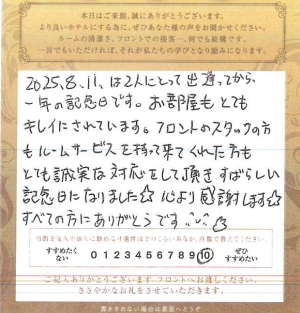 本日はご来館、誠にありがとうございます。
より良いホテルにする為に、ぜひあなた様の声をお聞かせください。
ルームの清潔さ、フロントでの接客…、何でも結構です。
一言でもいただければ、それが私たちの学びとなり励みになります。
2025.8.11.は2人にとって出逢ってから
一年の記念日です。お部屋もとても
キレイにされています。フロントのスタッフの方
もルームサービスを持って来てくれた方も
とても誠実な対応をして頂きすばらしい
記念日になりました☆ 心より感謝します☆
すべての方にありがとうです
当館を友人や知人に勧める可能性はどのくらいあるか、点数で教えてください。
すすめたく
ない
0 1 2 3 4 5 6 7 8 9 10
ぜひ
すすめたい
ご記入ありがとうございます。フロントへお渡しください。
ささやかなお礼をさせていただきます。
書ききれない場合は裏面へどうぞ